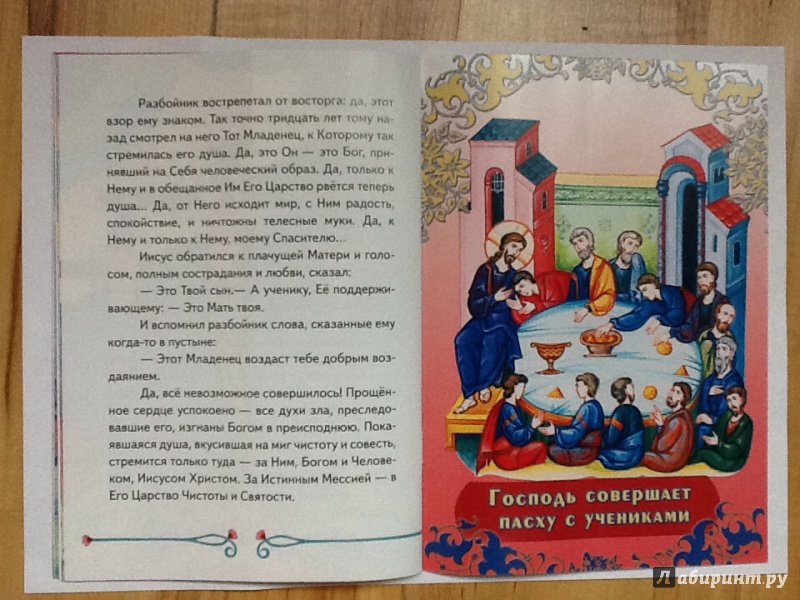 Разбойник вострепетал от восторга: да, этот
взор ему знаком. Так точно тридцать лет тому на-
зад смотрел на него Тот Младенец, к Которому так
стремилась его душа. Да, это Он — это Бог, при-
нявший на Себя человеческий образ. Да, только к
Нему и в обещанное Им Его Царство рвётся теперь
душа... Да, от Него исходит мир, с Ним радость,
спокойствие, и ничтожны телесные муки. Да, к
Нему и только к Нему, моему Спасителю...
Иисус обратился к плачущей Матери и голо-
сом, полным сострадания и любви, сказал:
— Это Твой сын.— А ученику, Её поддержи-
вающему: — Это Мать твоя.
И вспомнил разбойник слова, сказанные ему
когда-то в пустыне:
— Этот Младенец воздаст тебе добрым воз-
даянием.
Да, всё невозможное совершилось! Прощён-
ное сердце успокоено — все духи зла, преследо-
вавшие его, изгнаны Богом в преисподнюю. Пока-
явшаяся душа, вкусившая на миг чистоту и совесть,
стремится только туда — за Ним, Богом и Челове-
ком, Иисусом Христом. За Истинным Мессией — в
Его Царство Чистоты и Святости.
Господь совершает
пасху с учениками
Лабиринт.ру